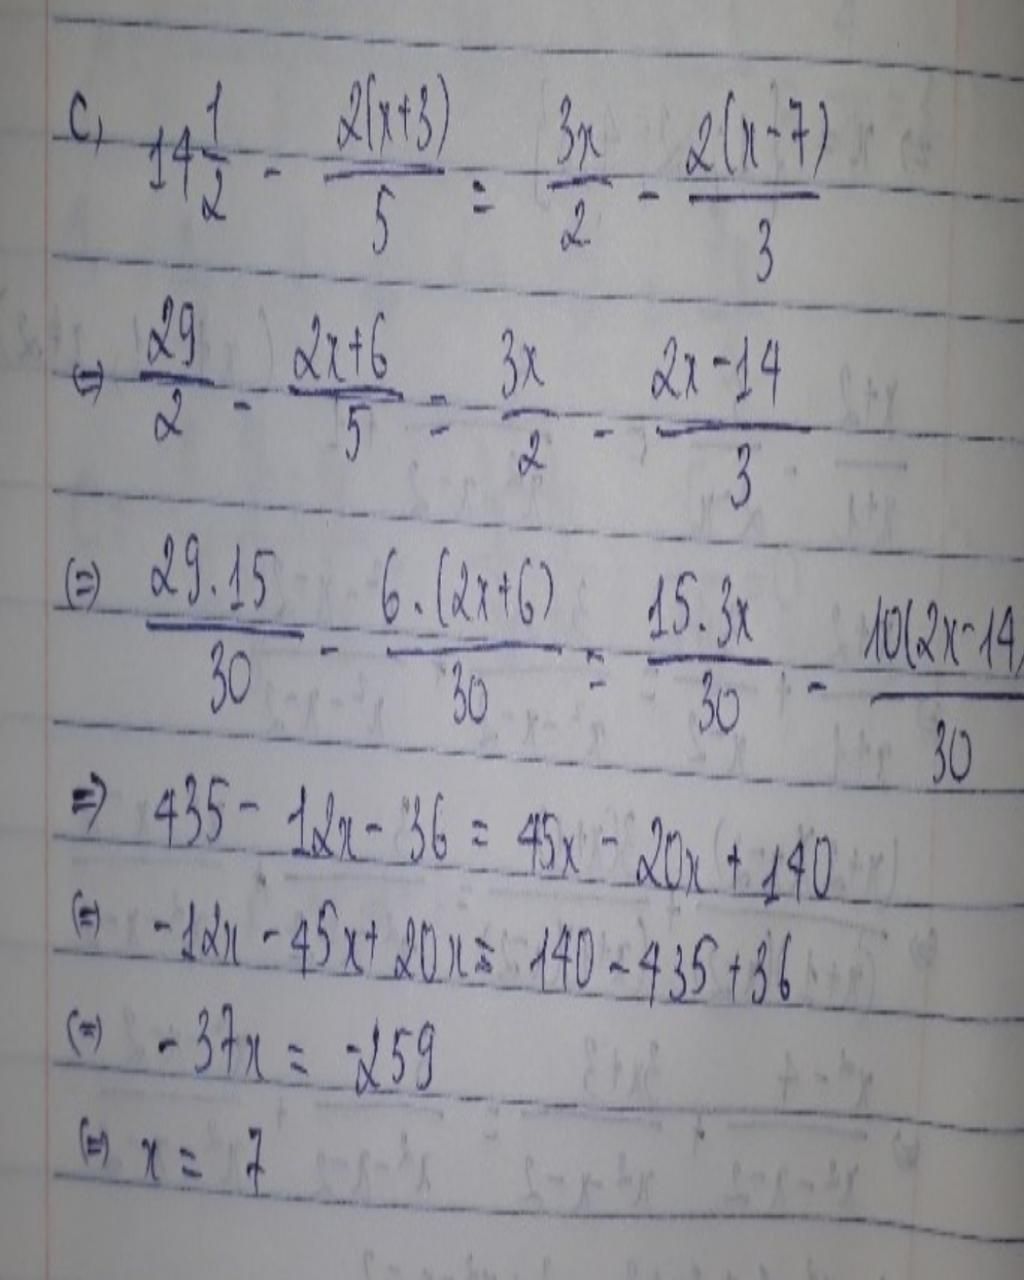 c, 14 1/2 - 2(x+3)/5 = 3x/2 - 2(x-7)/3
(=) 29/2 - 2x+6/5 = 3x/2 - 2x-14/3
(=) 29.15/30 - 6.(2x+6)/30 = 15.3x/30 - 10(2x-14)/30
=) 435 - 12x - 36 = 45x - 20x + 140
(=) -12x - 45x + 20x = 140 - 435 + 36
(=) -37x = -259
(=) x = 7